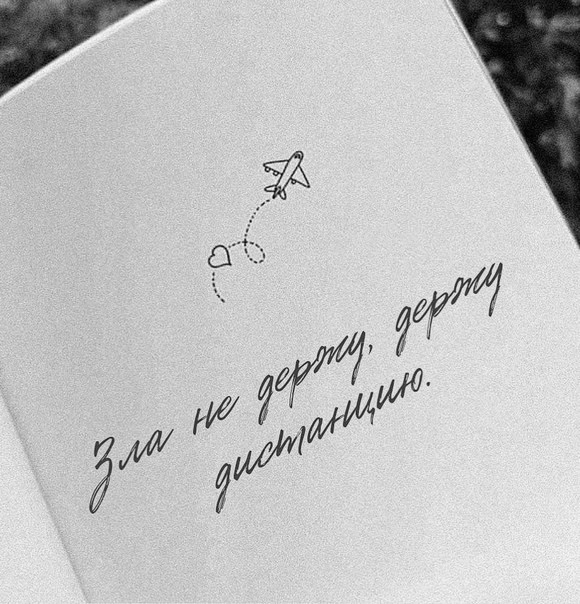 Зла не держу, держу
дистанцию.